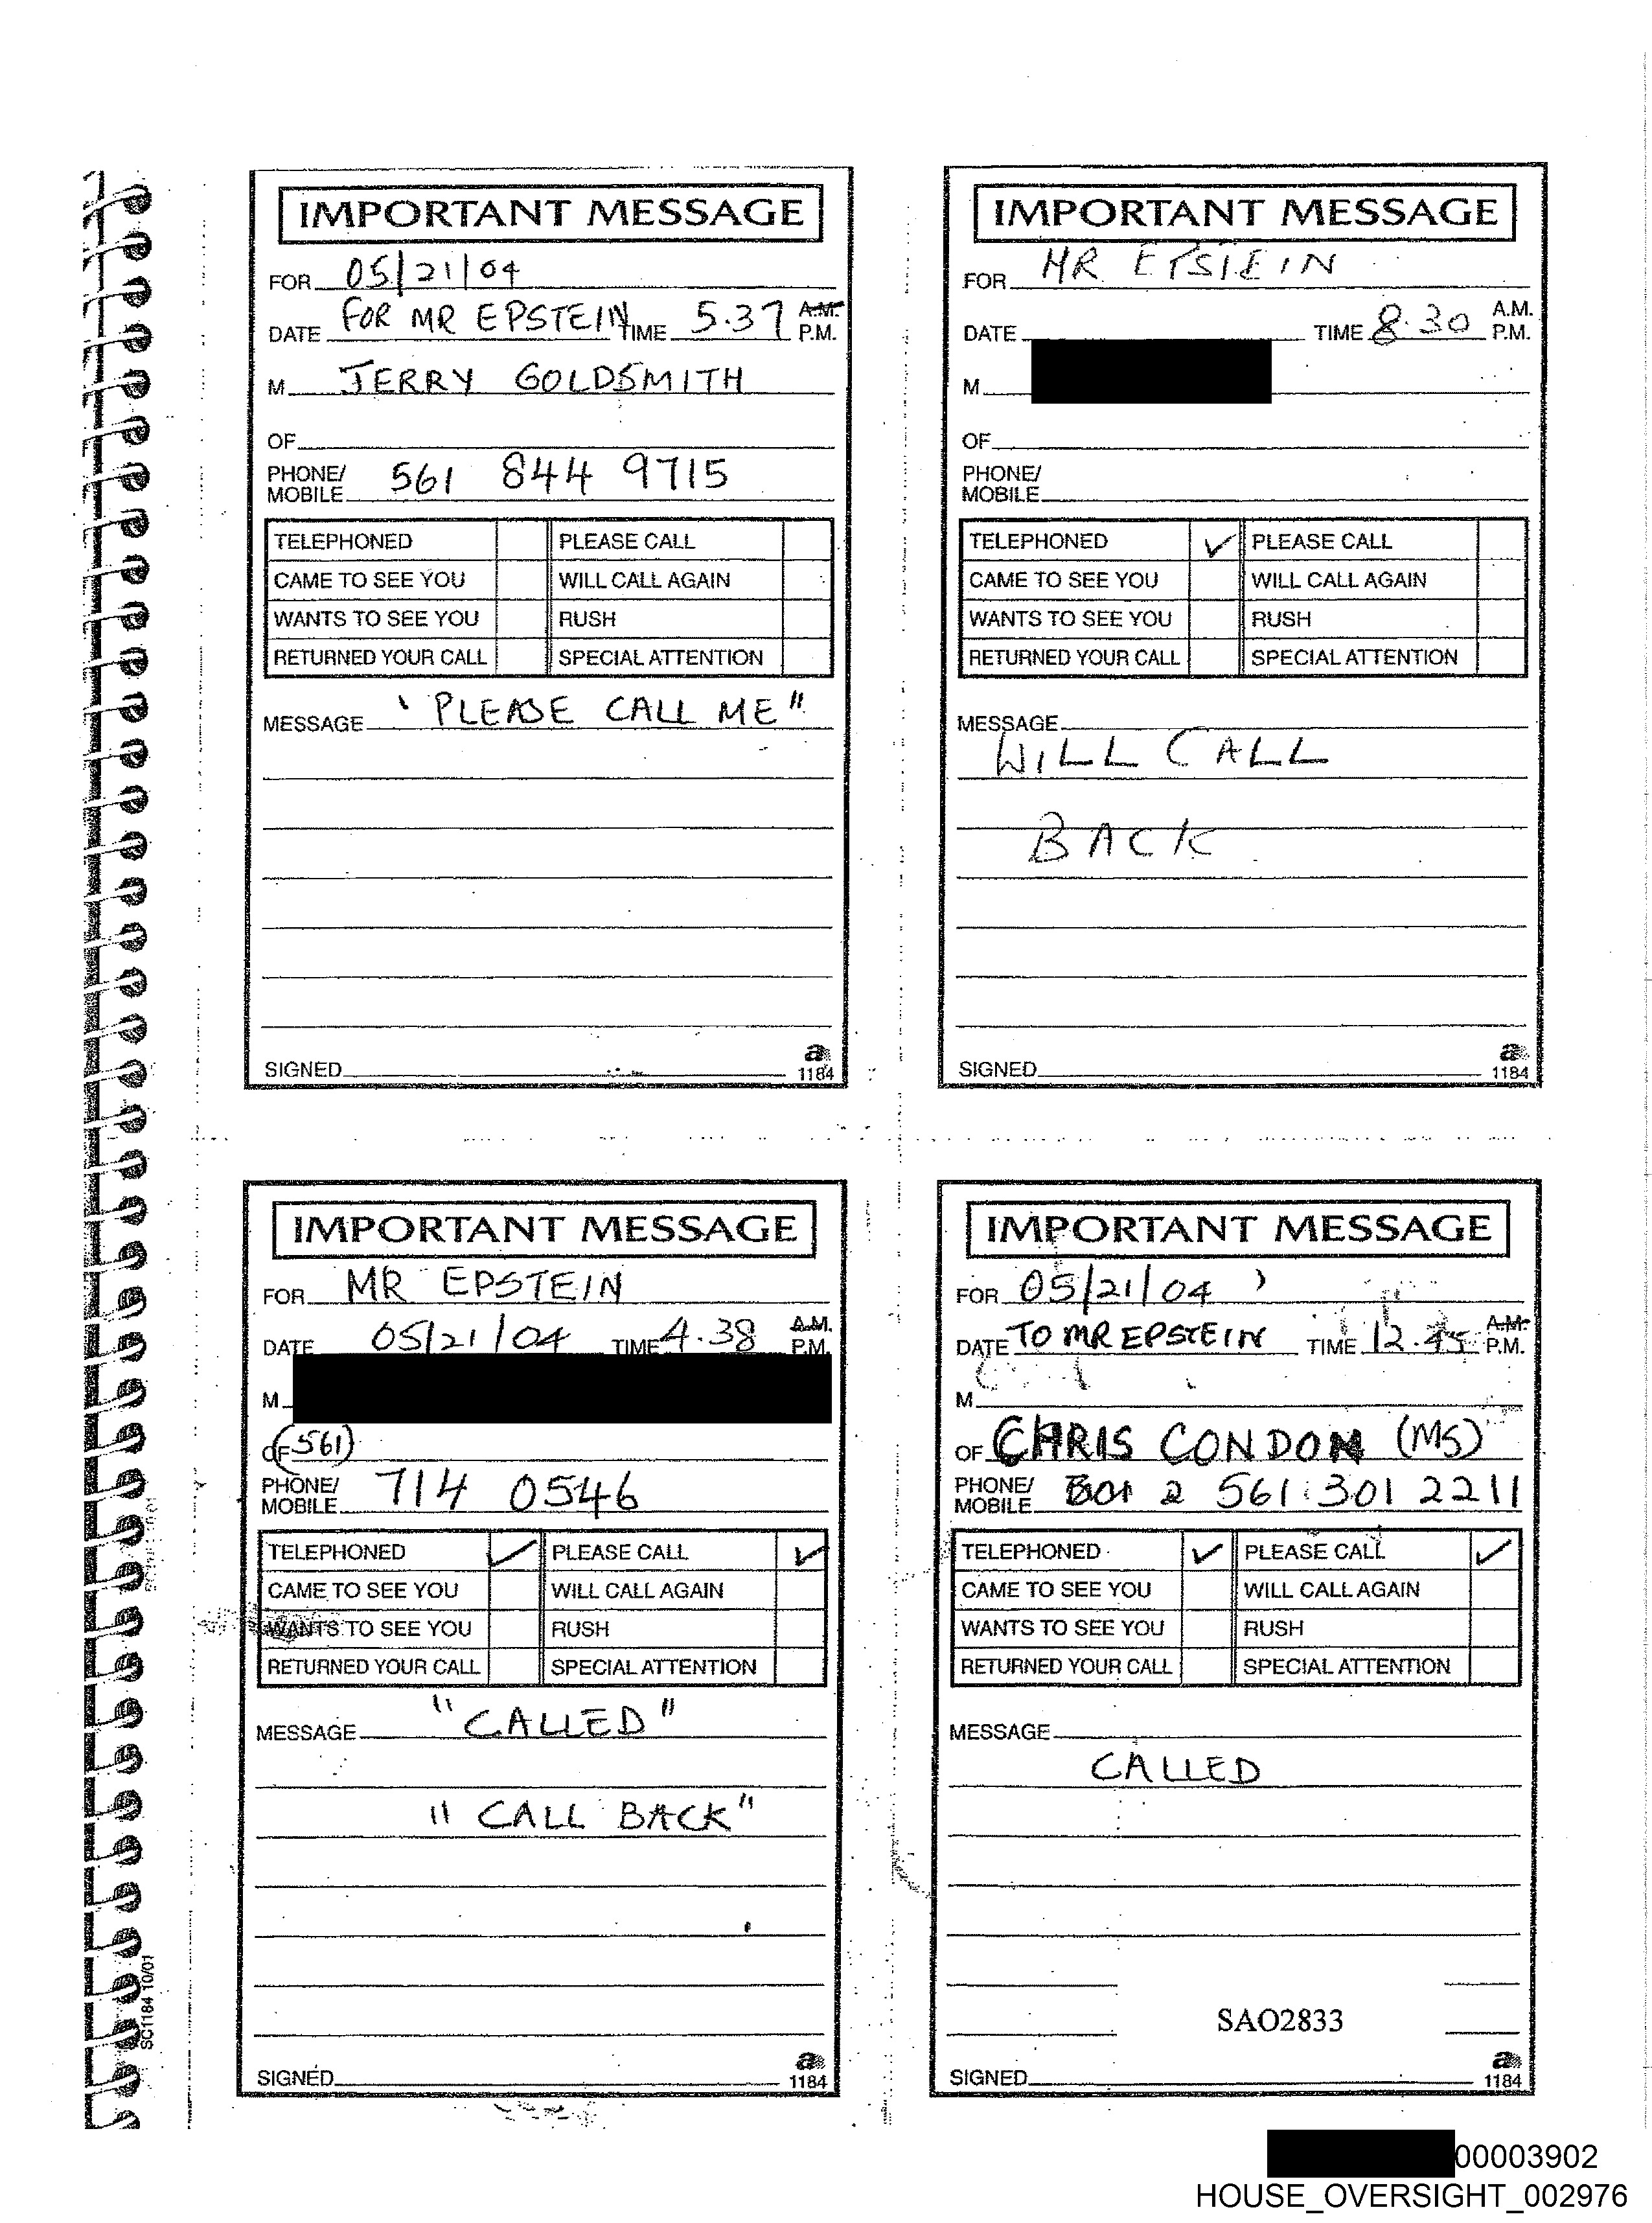 IMPORTANT MESSAGE
FOR 05/21/04
DATE FOR MR EPSTEIN TIME 5.37 A.M. P.M.
M JERRY GOLDSMITH
OF
PHONE/ MOBILE 561 844 9715
TELEPHONED PLEASE CALL
CAME TO SEE YOU WILL CALL AGAIN
WANTS TO SEE YOU RUSH
RETURNED YOUR CALL SPECIAL ATTENTION
MESSAGE "PLEASE CALL ME"
SIGNED
a
1184
IMPORTANT MESSAGE
FOR MR ETSIEIN
DATE TIME 8.30 A.M. P.M.
M
OF
PHONE/ MOBILE
TELEPHONED ✓ PLEASE CALL
CAME TO SEE YOU WILL CALL AGAIN
WANTS TO SEE YOU RUSH
RETURNED YOUR CALL SPECIAL ATTENTION
MESSAGE
WILL CALL
BACK
SIGNED
a
1184
IMPORTANT MESSAGE
FOR MR EPSTEIN
DATE 05/21/04 TIME 4.38 A.M. P.M.
M
OF (561)
PHONE/ MOBILE 714 0546
TELEPHONED ✓ PLEASE CALL ✓
CAME TO SEE YOU WILL CALL AGAIN
WANTS TO SEE YOU RUSH
RETURNED YOUR CALL SPECIAL ATTENTION
MESSAGE "CALLED"
"CALL BACK"
SIGNED
a
1184
IMPORTANT MESSAGE
FOR 05/21/04
DATE TO MR EPSTEIN TIME 12.45 A.M. P.M.
M
OF CHRIS CONDON (MS)
PHONE/ MOBILE 561 301 2211
TELEPHONED ✓ PLEASE CALL ✓
CAME TO SEE YOU WILL CALL AGAIN
WANTS TO SEE YOU RUSH
RETURNED YOUR CALL SPECIAL ATTENTION
MESSAGE
CALLED
SAO2833
SIGNED
a
1184
SC1184 10/01
00003902
HOUSE_OVERSIGHT_002976